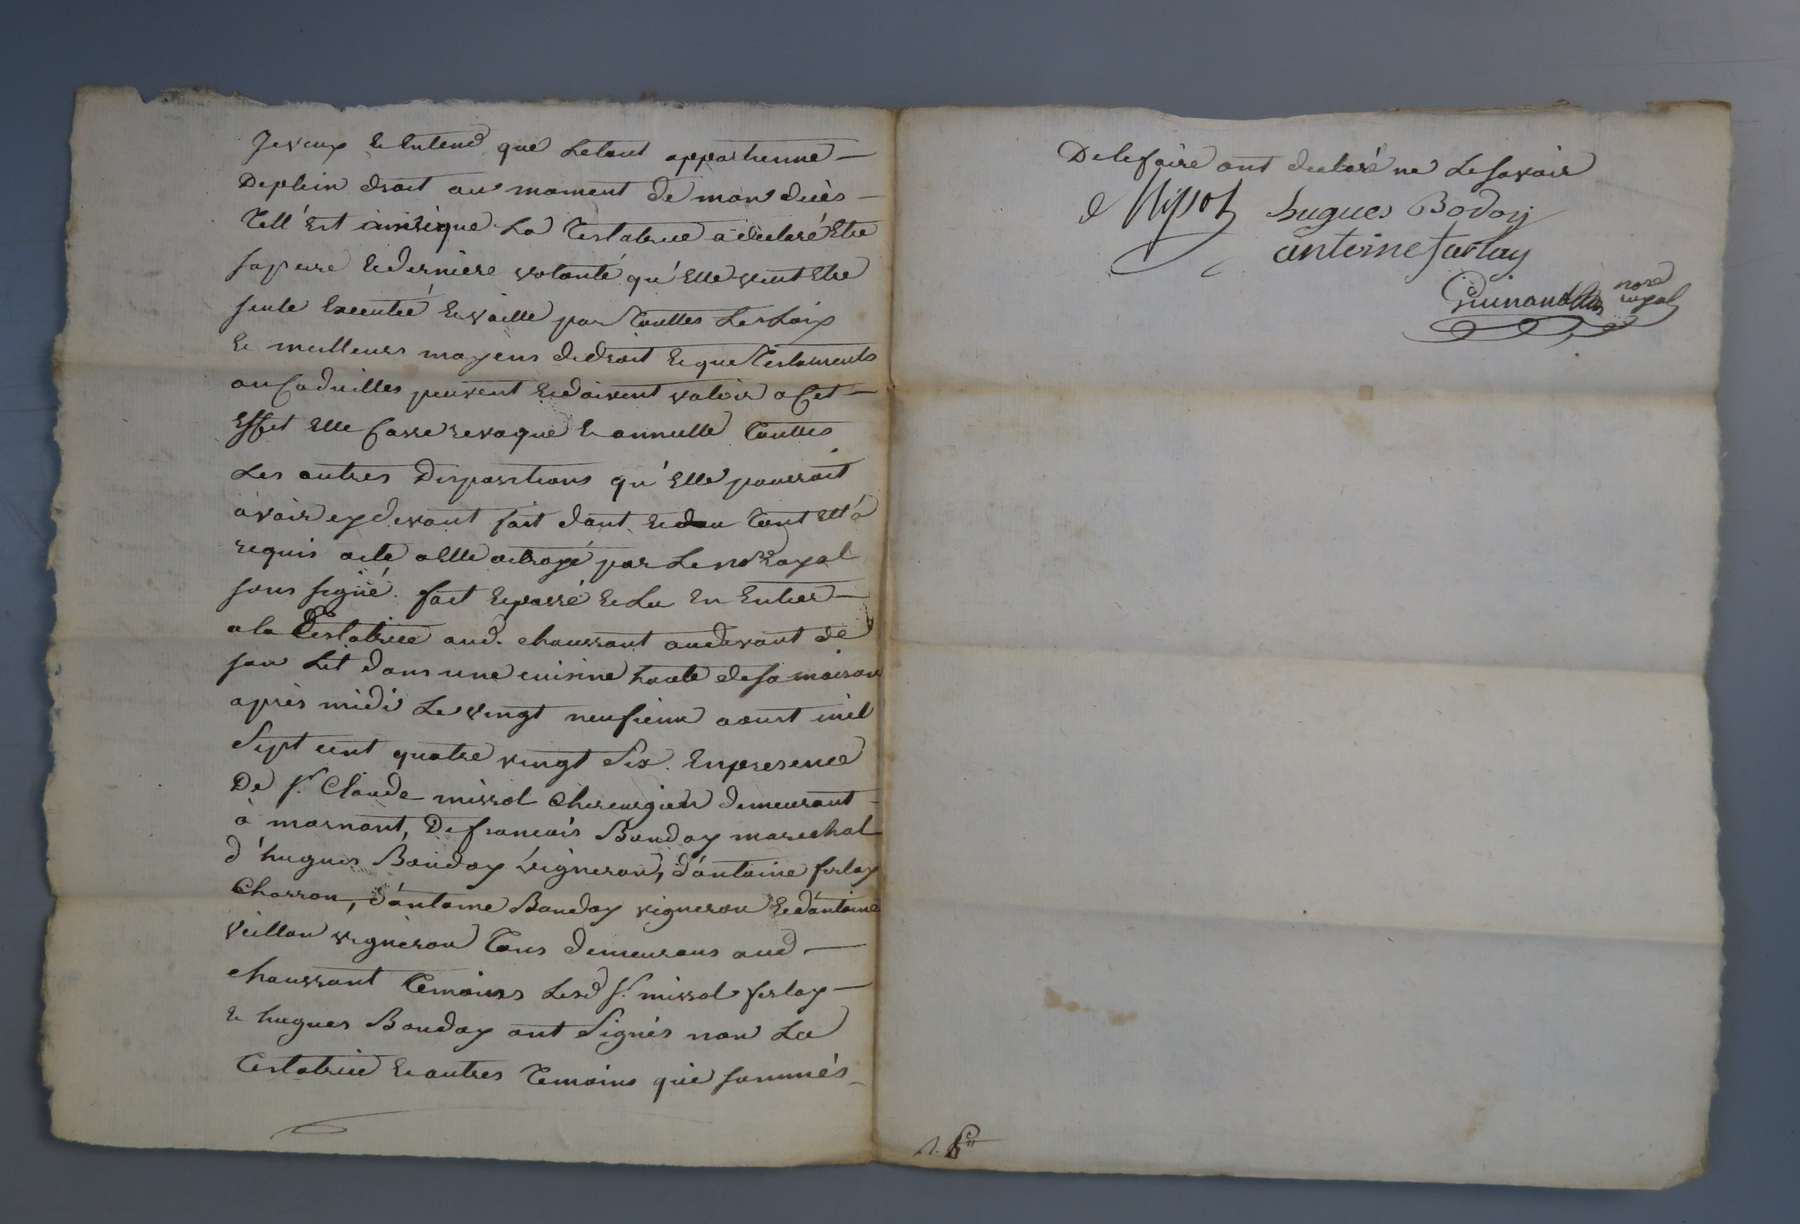 Je veux & Entend que Le tout appartienne
De plein droit au moment de mon decès
Tell' Est ainsi que La Testatrice a declaré Etre
sa pure & derniere volonté qu'Elle veut Etre
seule Executée & vaille par Touttes Les Loix
& meilleurs moyens de droit & que Testaments
ou Codicilles peuvent & doivent valoir a Cet
Effet Elle Casse revoque & annulle Touttes
Les autres Dispositions qu'Elle pouroit
avoir cy devant fait dont & du Tout Ell' a
requis acte a Elle octroyé par Le nore Royal
sous signé. fait & passé & Lu En Entier
a la Testatrice aud. chaussant au devant de
son Lit dans une cuisine haute de sa maison
après midi Le vingt neufieme aoust mil
Sept cent quatre vingt Six. En presence
De sr. Claude missol chirurgien demeurant
à mornant, De francois Bouday marechal
d'hugues Bouday vigneron, d'antoine ferlay
Charron, d'antoine Bouday vigneron & d'antoine
veillon vigneron Tous demeurans aud
chaussant Temoins Lesd sr. missol ferlay
& hugues Bouday ont Signés non La
Testatrice & autres Temoins qui sommés
De le faire ont declaré ne Le savoir
Missol hugues Bodoy
antoine farlay
nore
royal